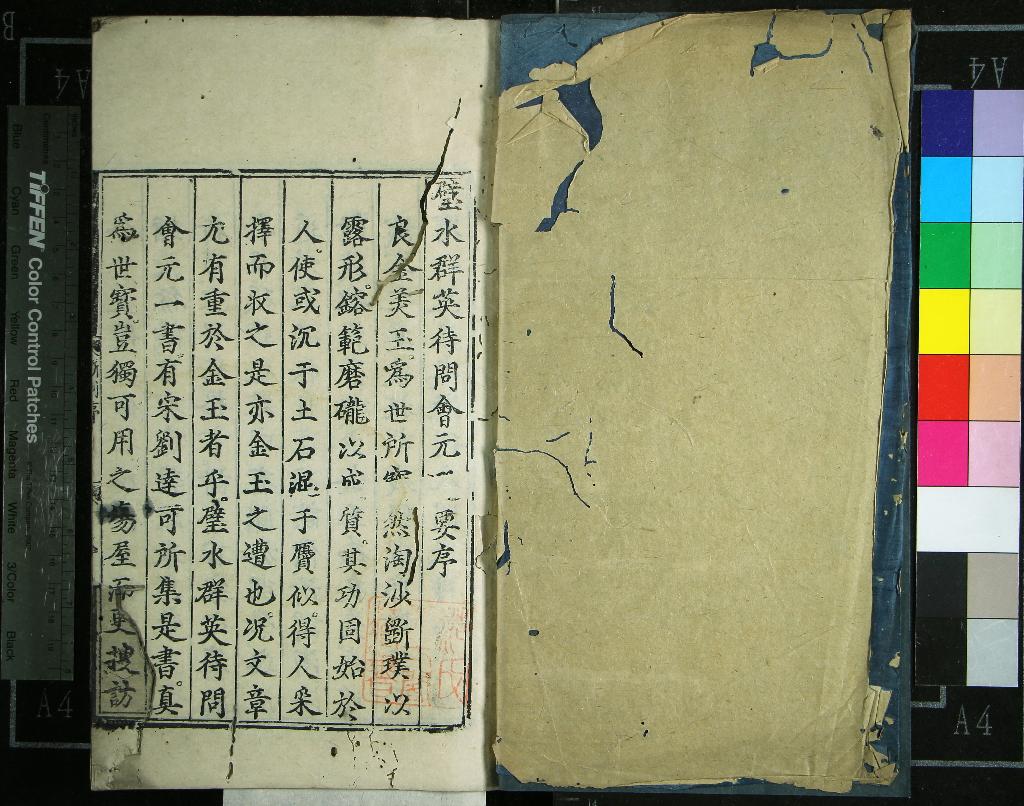 璧水群英待問會元一要序
良金美玉爲世所寳然淘沙斵璞以
露形鎔範磨礲以成質其功固始於
人使或沉于土石混于贋似得人采
擇而收之是亦金玉之遭也况文章
尤有重於金玉者乎璧水群英待問
會元一書有宋劉達可所集是書真
爲世寳豈獨可用之塲屋而更搜訪
TIFFEN Color Control Patches
Centimetres
Blue Cyan Green Yellow Red Magenta White 3/Color Black
A4
A4
A4
A4
B